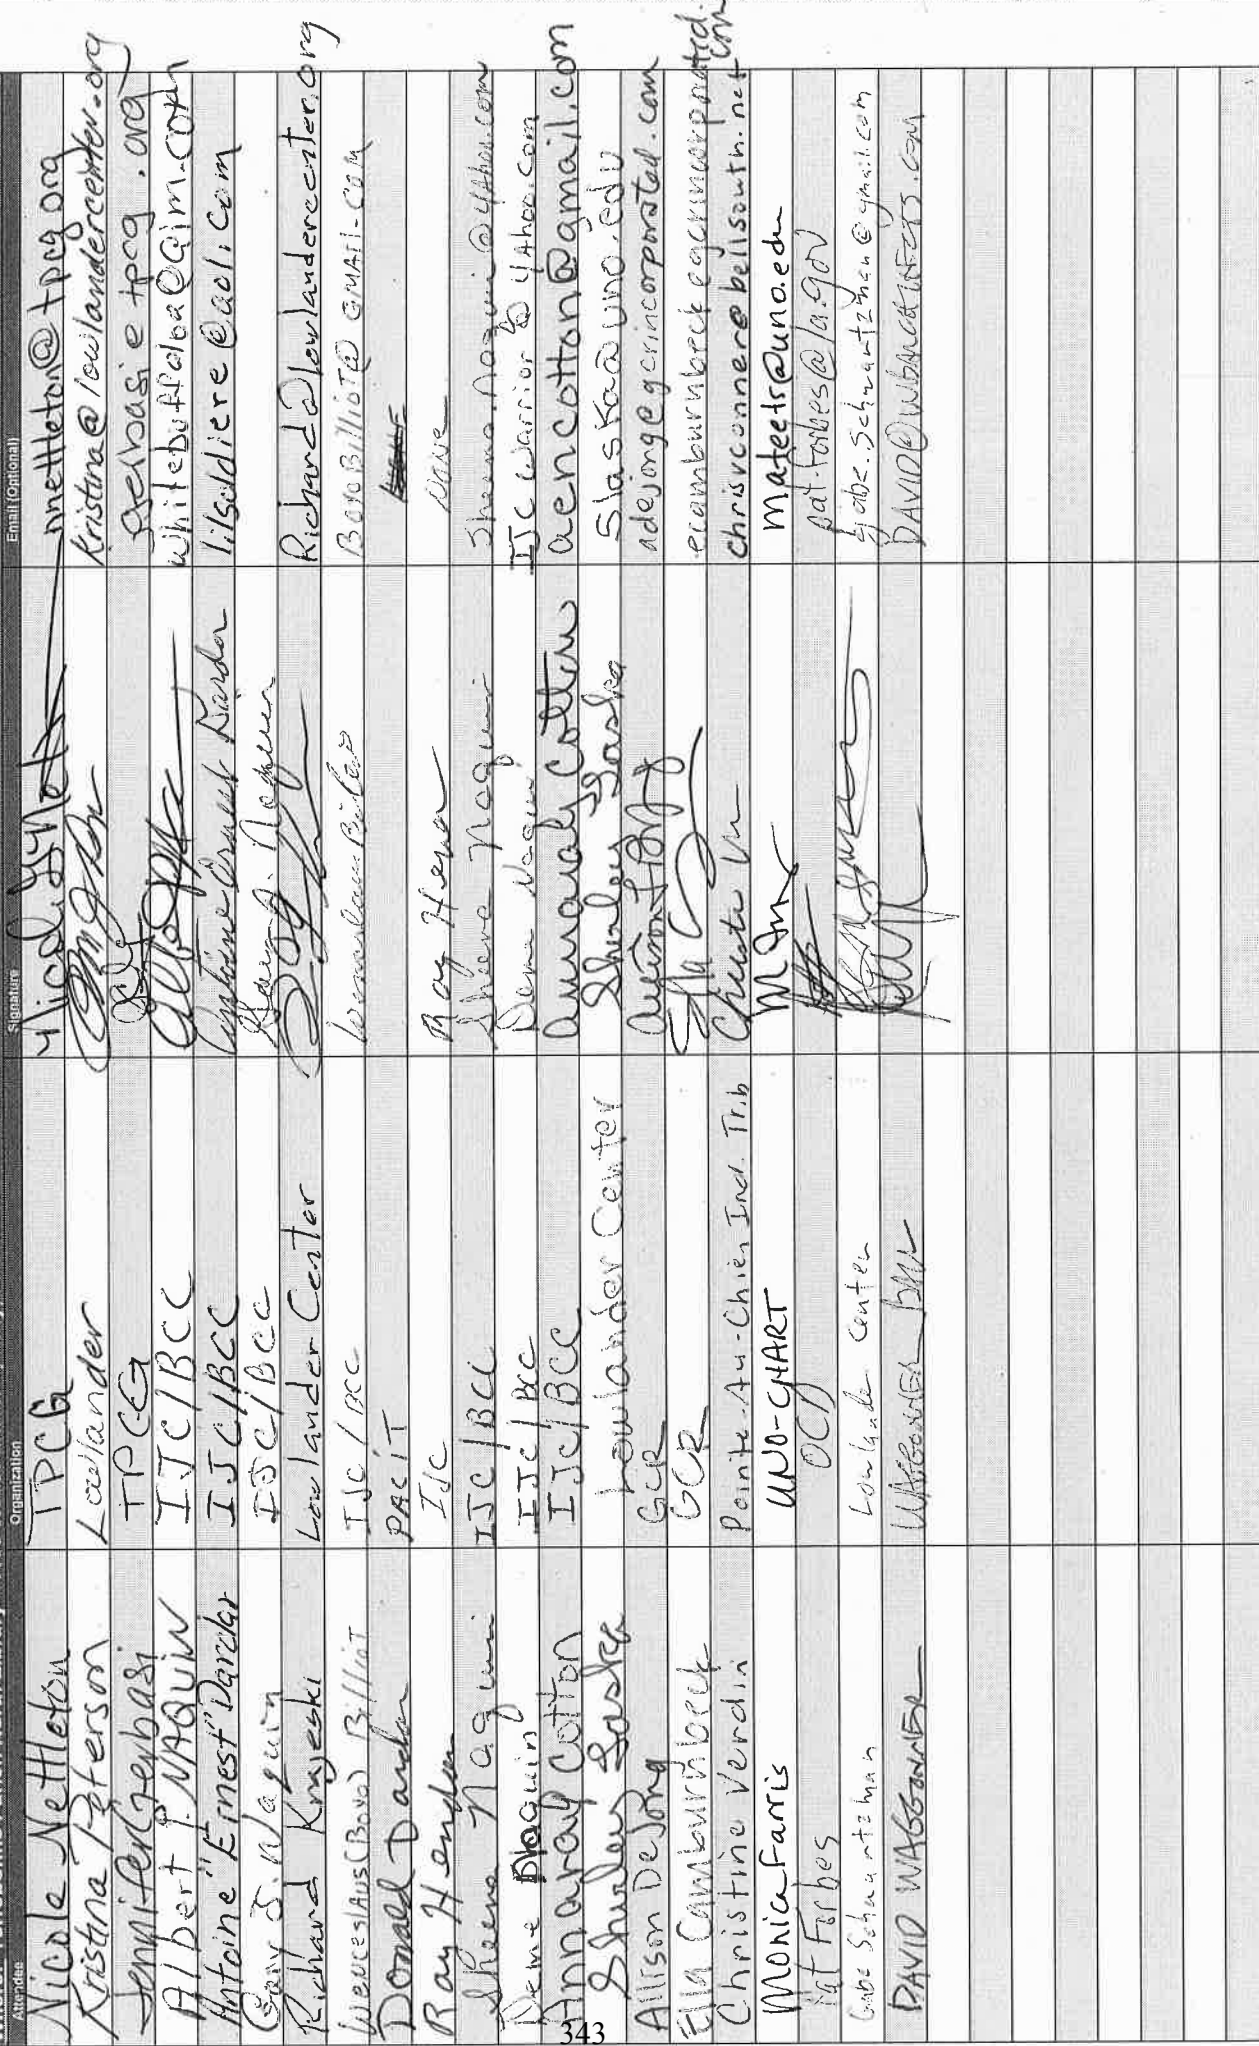 Attendee Organization Signature Email (Optional)
Nicole Nettleton TPCG nnettleton@tpcg.org
Kristina Peterson Lowlander kristina@lowlandercenter.org
Jennifer Gerbasi TPCG jgerbasi@tpcg.org
Albert P. NAQUIN IJC/BCC whitebuffaloa@aim.com
Antoine "Ernest" Dardar IJC/BCC lilsoldiere@aol.com
Gary J. Naquin IJC/BCC
Richard Krajeski Lowlander Center Richard@lowlandercenter.org
Wenceslaus (Bobo) Billiot IJC/BCC BoboBilliot@GMAIL.COM
Donald Dardar PACIT
Ray Hendon IJC Ray None
Sheena Naquin IJC/BCC Sheena Naquin Sheena.naquin@yahoo.com
Deme Naquin IJC/BCC Deme Naquin IJC warrior @ yahoo.com
Annaraly Cotton IJC/BCC Annaraly Cotton aencotton@gmail.com
Shirley Laska Lowlander Center Shirley Laska slaska@uno.edu
Allison DeJong GCR adejong@gcrincorporated.com
Ella Camburnbeck GCR Ella ecamburnbeck@gcrincorporated.com
Christine Verdin Pointe-Au-Chien Ind. Trib chrisvconner@bellsouth.net
Monica Farris UNO-CHART mateets@uno.edu
Pat Forbes OCD pat.forbes@la.gov
Gabe Schwartzman Lowlander Center gabe.schwartzman@gmail.com
DAVID WAGGONNER WAGGONNER
343